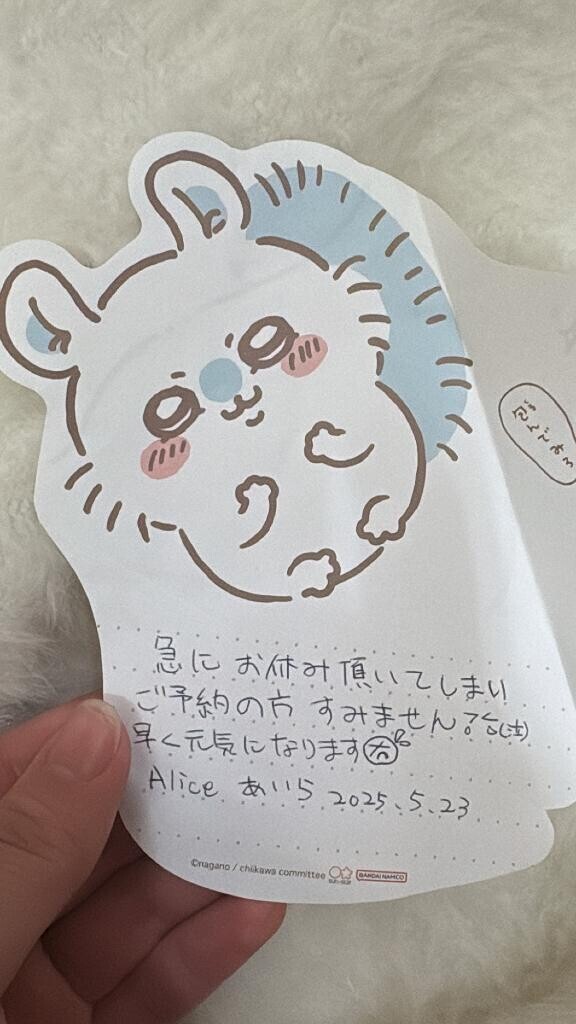 包まんでみろ
急に お休み頂いてしまい
ご予約の方 すみません
早く元気になります
Alice あいら 2025.5.23
©nagano / chiikawa committee
BANDAI NAMCO